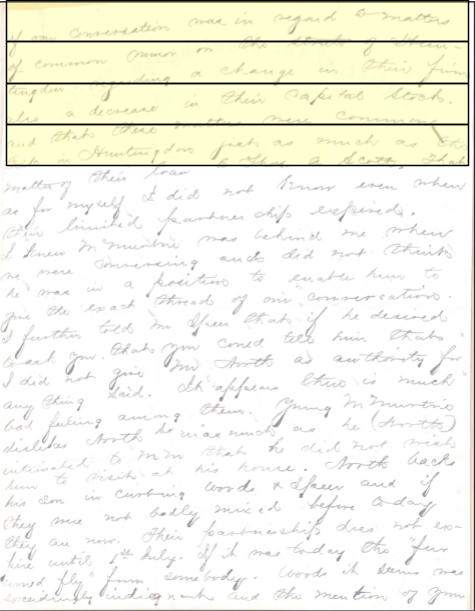 of our conversation was in regard to matters
of common rumor on the streets of Hun-
tingdon regarding a change in their firm
also a decrease in their Capital Stock.
and that these matters were common
talk in Huntingdon just as much as the
matter of their loan to Thos A Scott. That
as for myself I did not know even when
their limited partnership expired.
I knew McMurtrie was behind me when
we were conversing and did not think
he was in a position to enable him to
give the exact thread of our conversation.
I further told Mr Speer that if he desired
to ask you. that you coned tell him that
I did not give Mr North as authority for
any thing said. It appears there is much
bad feeling among them. Young McMurtrie
dislikes North in as much as he (North)
intimated to McM that he did not wish
him to visit at his house. North backs
his Son in cursing Woods & Speer and if
they were not badly mixed before today
they are now. Their partnership does not ex-
pire until 1st July. If it was today the "fur
would fly" from somebody. Woods it seems was
exceedingly indignant and the mention of your